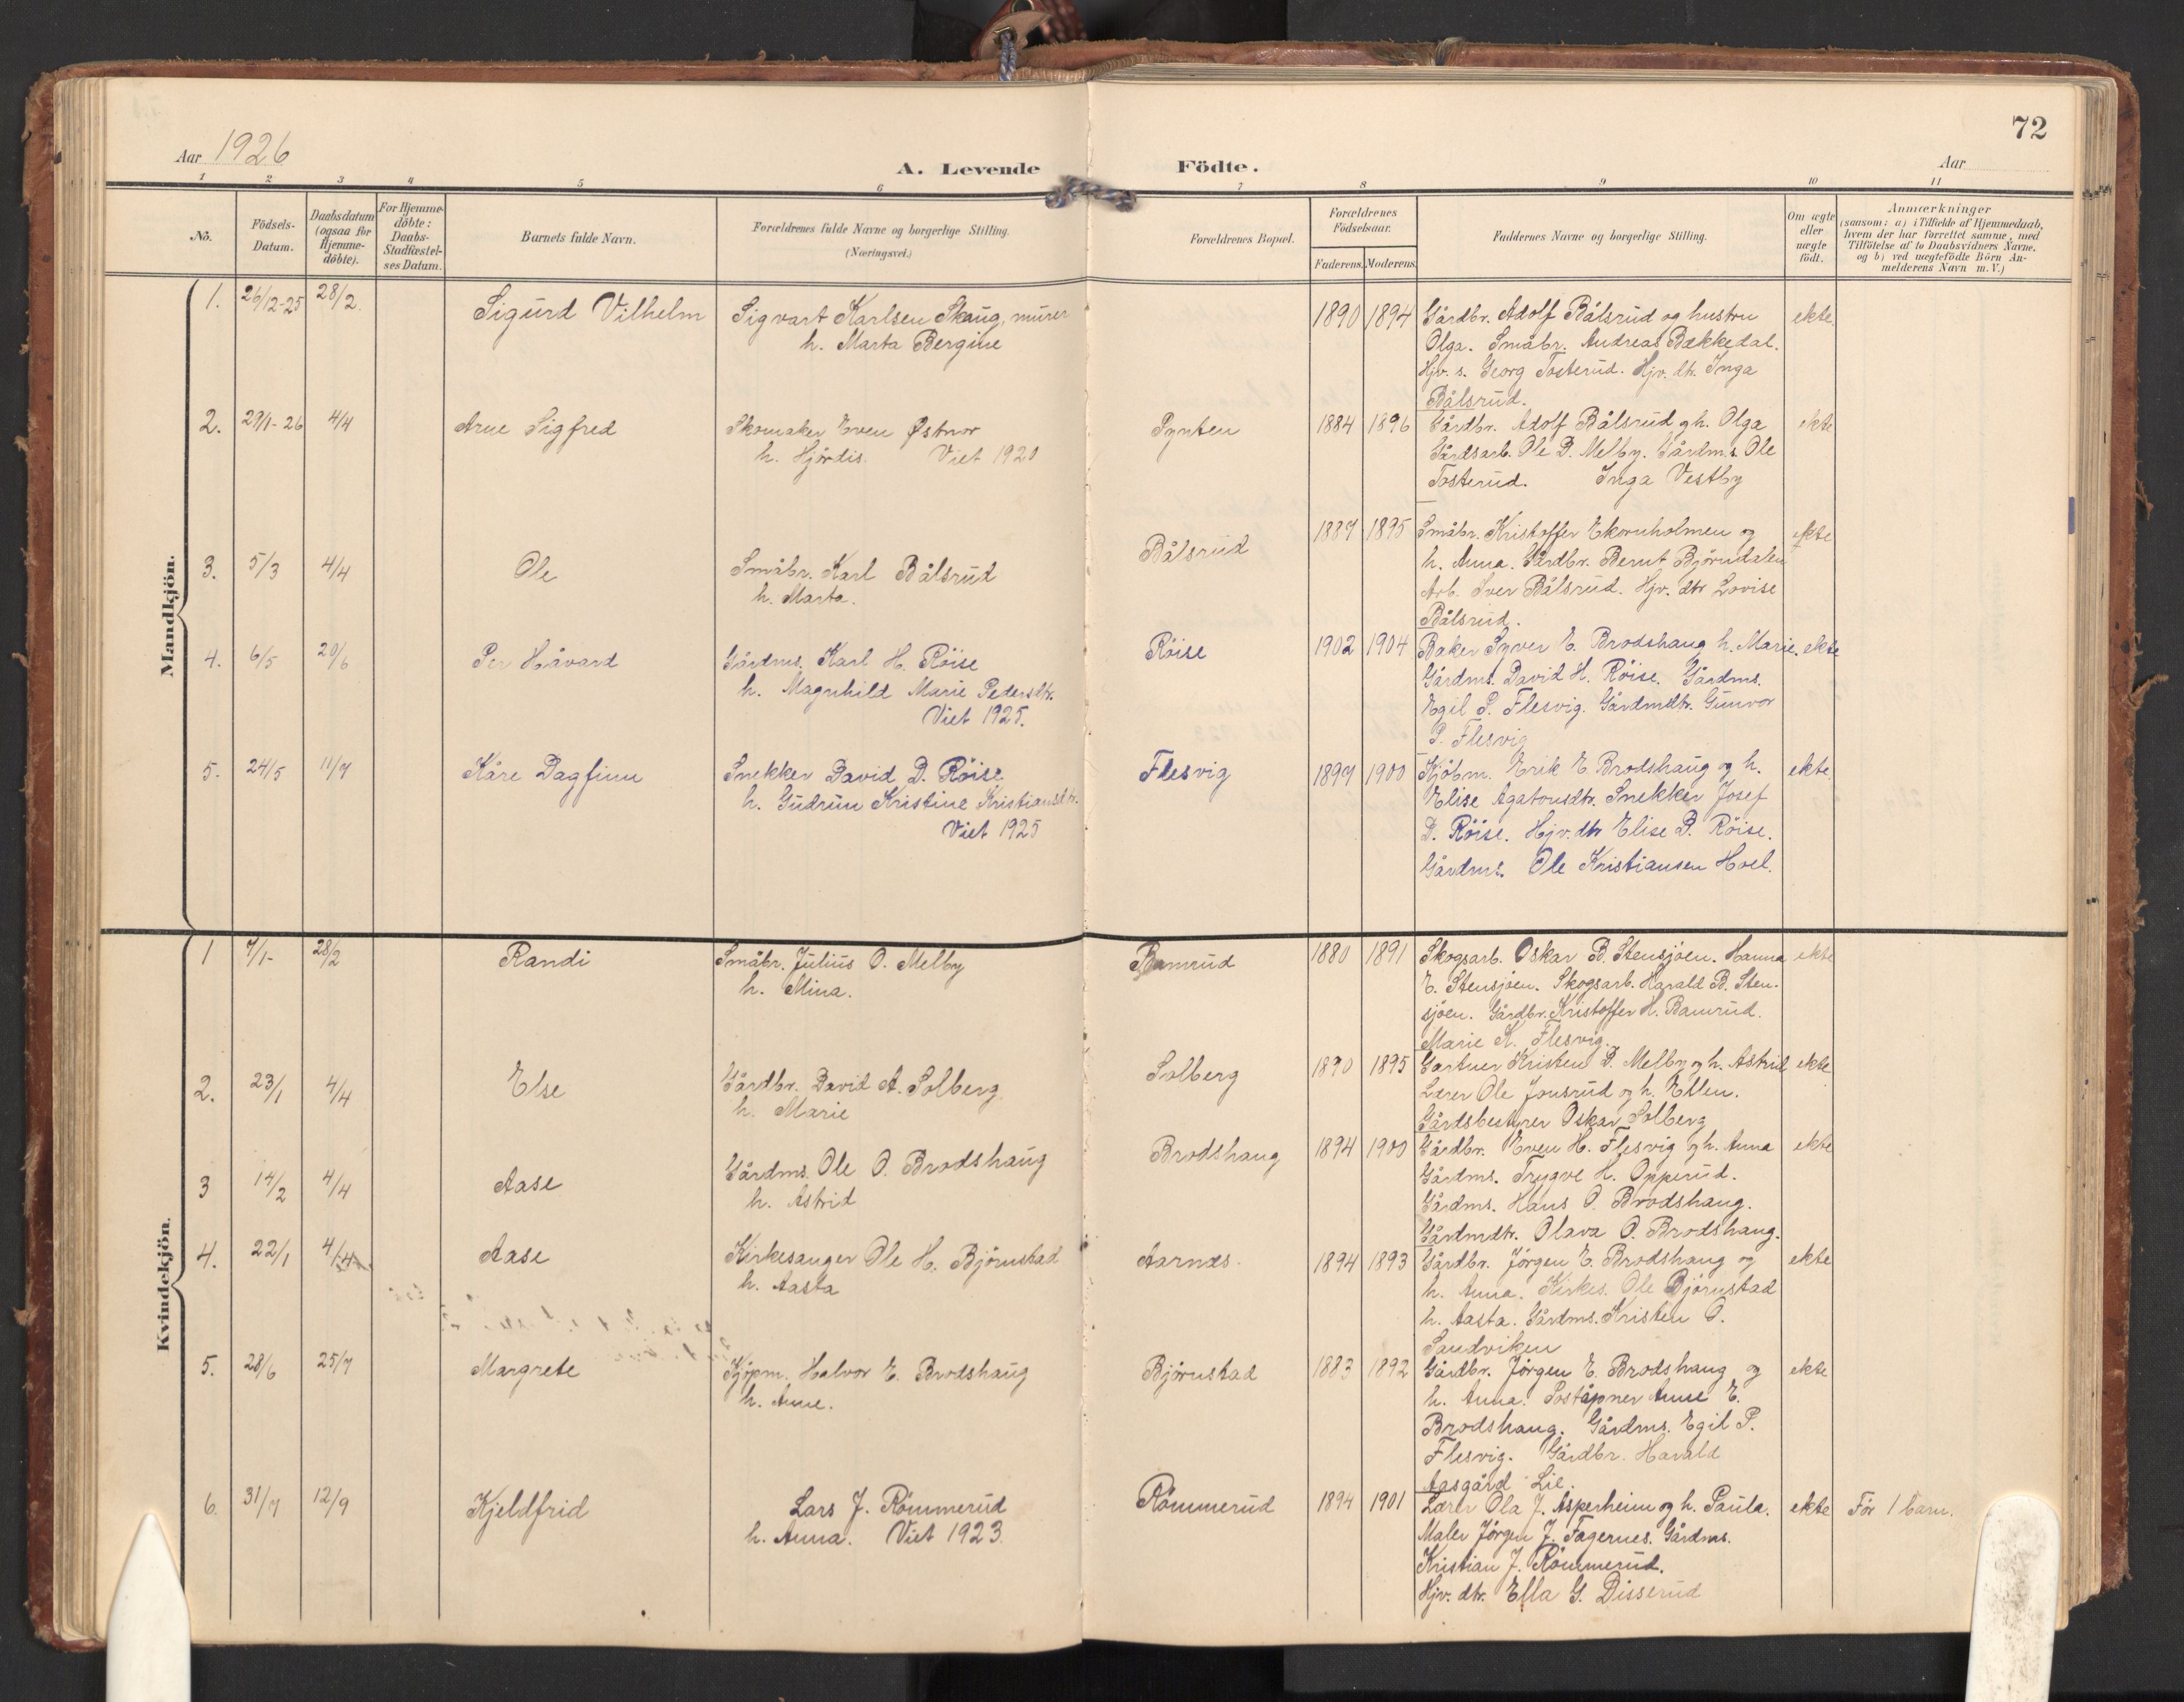 72
Aar 1926
A. Levende Födte.
Aar
1 2 3 4 5 6 7 8 9 10 11
No.
Födsels-Datum.
Daabsdatum (ogsaa for Hjemme-döbte).
For Hjemme-döbte: Daabs-Stadfæstel-ses Datum.
Barnets fulde Navn.
Forældrenes fulde Navne og borgerlige Stilling.
(Næringsvei.)
Forældrenes Bopæl.
Forældrenes Födselsaar.
Faderens. Moderens.
Faddernes Navne og borgerlige Stilling.
Om ægte eller uægte födt.
Anmærkninger
(saasom: a) i Tilfælde af Hjemmedaab, hvem der har forrettet samme, med Tilföielse af to Daabsvidners Navne, og b) ved uægtefödte Börn An-melderens Navn m. V.)
Mandkjön.
1. 26/12-25 28/2. Sigurd Vilhelm Sigvart Karlsen Skaug, murer 1890 1894 Gårdbr. Adolf Bålsrud og hustru ekte.
h. Marta Bergine Olga. Småbr. Andreas Bækkedal.
Hjv. s. Georg Tosterud. Hjv. dtr. Inga
Bålsrud.
2. 29/1-26 4/4 Arne Sigfred Skomaker Even Østmor Pynten 1884 1896 Gårdbr. Adolf Bålsrud og h. Olga ekte
h. Hjørdis. Viet 1920 Gårdsarb. Ole D. Melby. Gårdm.s. Ole
Tosterud. Inga Vestby
3. 5/3 4/4 Ole Småbr. Karl Bålsrud Bålsrud 1887 1895 Småbr. Kristoffer Ekornholmen og ekte
h. Marta. h. Anna. Gårdbr. Bernt Bjørndalen
Arb. Iver Bålsrud. Hjv. dtr Lovise
Bålsrud.
4. 6/5 20/6 Per Håvard Gårdms. Karl H. Röise Röise 1902 1904 Baker Syver E. Brodshaug h. Marie. ekte
h. Magnhild Marie Pedersdtr. Gårdms. David H. Röise. Gårdms.
Viet 1925. Egil P. Flesvig. Gårdmdtr. Gunvor
P. Flesvig
5. 24/5 11/7 Kåre Dagfinn Snekker David D. Röise Flesvig 1897 1900 Kjöbm. Erik E. Brodshaug og h. ekte.
h. Gudrun Kristine Kristiansdtr. Elise Agatonsdtr. Snekker Josef
Viet 1925 D. Röise. Hjv. dtr Elise D. Röise.
Gårdms. Ole Kristiansen Hoel.
Kvindekjön.
1 7/1- 28/2 Randi Småbr. Julius O. Melby Bamrud 1880 1891 Skogsarb. Oskar B. Stensjøen. Hanna ekte
h. Mina. E. Stensjøen. Skogsarb. Harald B. Sten-
sjöen. Gårdbr. Kristoffer H. Bamrud.
Marie K. Flesvig.
2. 23/1 4/4 Else Gårdbr. David A. Solberg Solberg 1890 1895 Gartner Kristen D. Melby og h. Astrid ekte
h. Marie Lærer Ole Jonsrud og h. Ellen.
Gårdsbestyrer Oskar Solberg
3 14/2 4/4 Aase Gårdms. Ole O. Brodshaug Brodshaug 1894 1900 Gårdbr. Even H. Flesvig og h. Anna ekte
h. Astrid Gårdms. Trygve H. Opperud.
Gårdms. Hans O. Brodshaug.
Gårdmdtr. Olava O. Brodshaug.
4. 22/1 4/4 Aase Kirkesanger Ole H. Björnstad Aarnæs. 1894 1893 Gårdbr. Jörgen E. Brodshaug og ekte
h. Aasta h. Anna. Kirkes. Ole Björnstad
h. Aasta. Gårdms. Kristen O.
Sandviken
5. 28/6 25/7 Margrete Kjöpm. Halvor E. Brodshaug Björnstad 1883 1892 Gårdbr. Jörgen E. Brodshaug og ekte
h. Anne. h. Anna. Poståpner Anne E.
Brodshaug. Gårdms. Egil P.
Flesvig. Gårdbr. Harald
Aasgård Lie.
6. 31/7 12/9 Kjeldfrid Lars J. Römmerud Römmerud 1894 1901 Lærer Ola J. Asperheim og h. Paula. ekte För 1 barn.
h. Anna. Viet 1923. Maler Jörgen J. Fagernes. Gårdms.
Kristian J. Römmerud.
Hjv. dtr. Ella G. Disserud